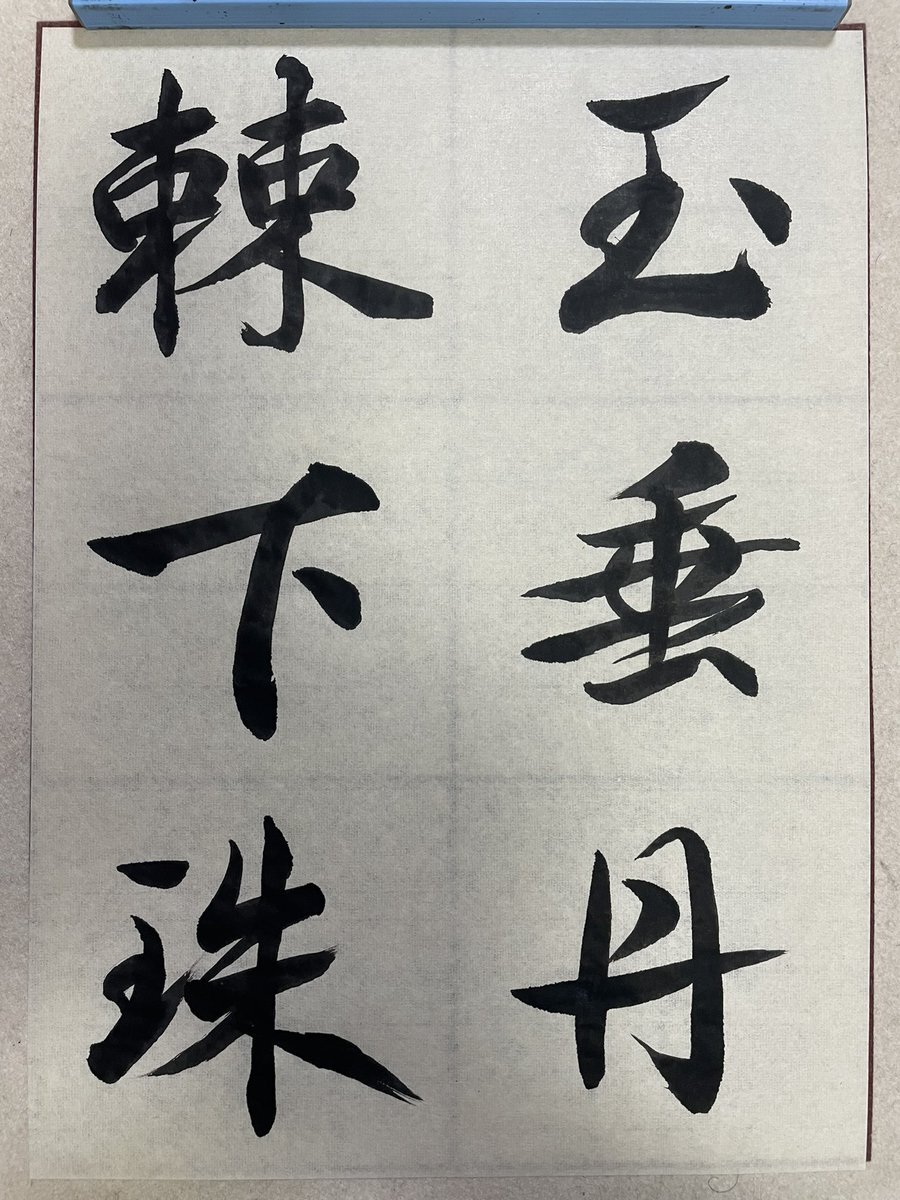 玉垂丹
棘下珠